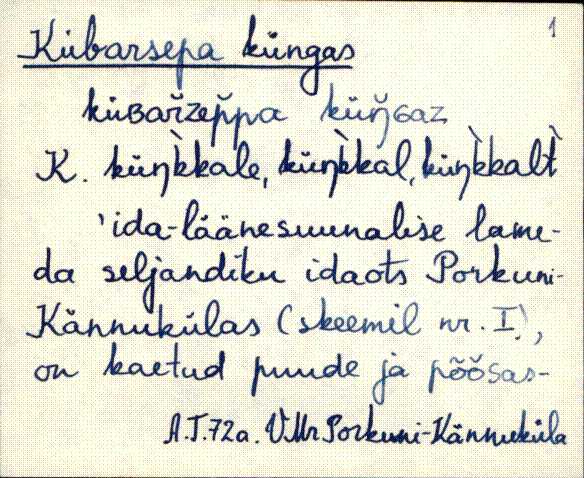 1
Kübarsepa küngas
küʙařzep̆pa küŋ̆ɢaz
K. küŋk̀kale, küŋk̀kal, küŋk̀kalt̀
'ida-läänesuunalise lame-
da seljandiku idaots Porkuni-
Kännukülas (skeemil nr. I),
on kaetud puude ja põõsas-
A.T.72a. VMr Porkuni-Kännuküla